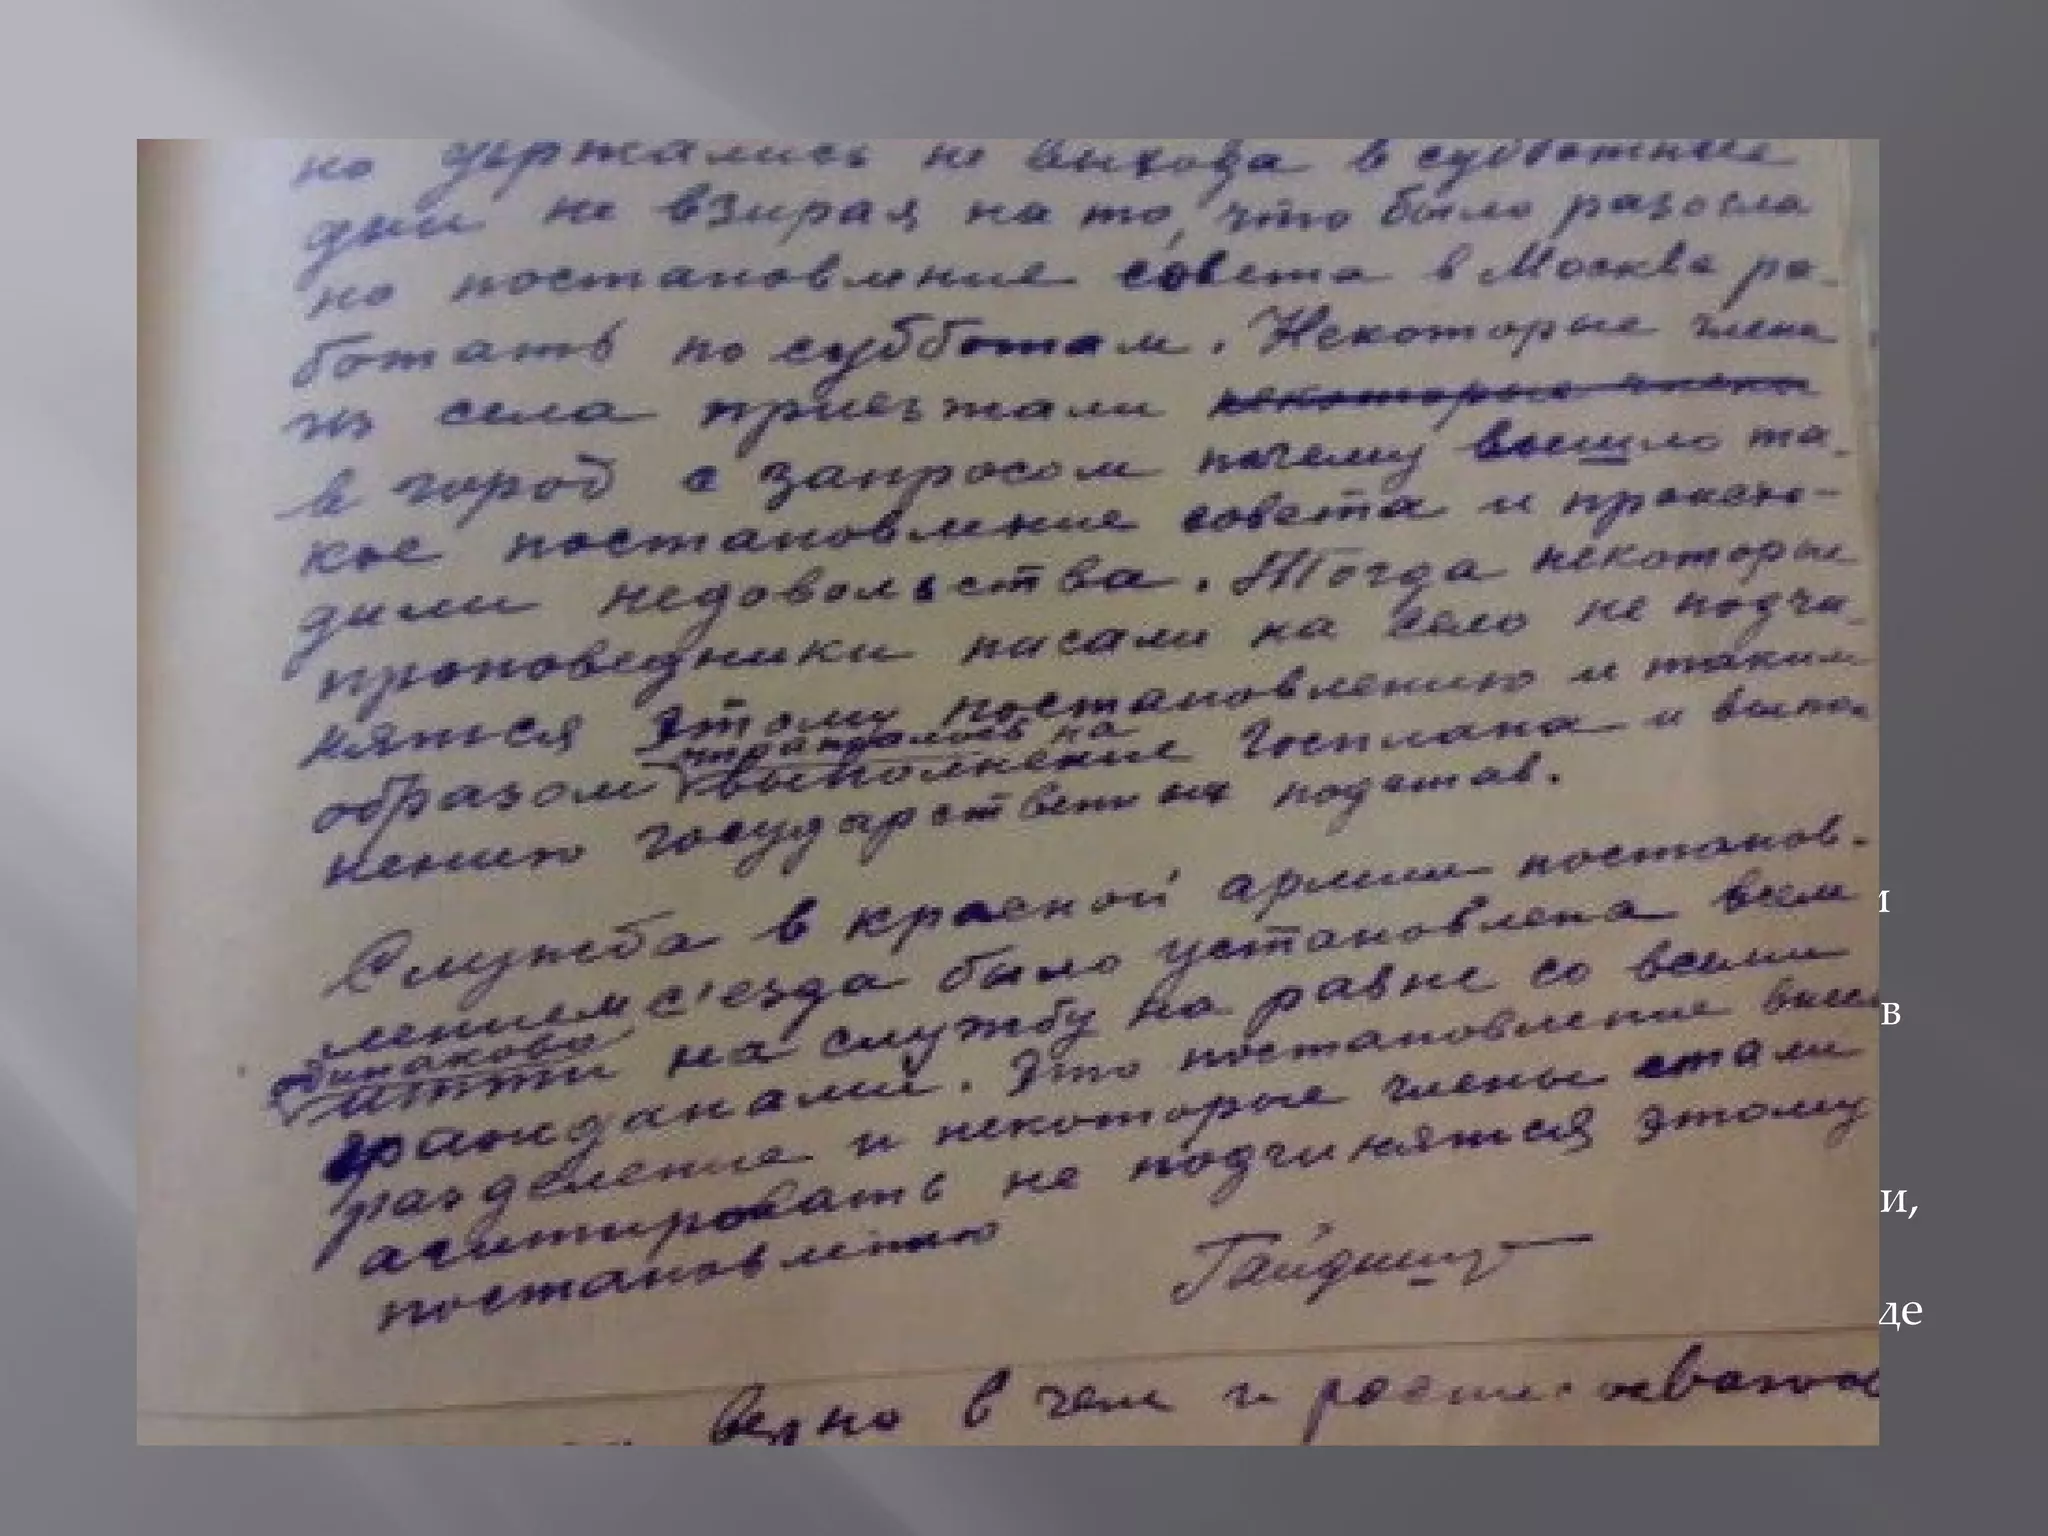 но удержались не выхода в субботние
дни не взирая на то, что было разосла
но постановление совета в Москве ра-
ботать по субботам. Некоторые члены
из села приезжали некоторые члены
в город с запросом почему вышло та-
кое постановление совета и происхо-
дили недовольства. Тогда некоторые
проповедники писали на село не подчи-
няться этому постановлению и таким
отражалось на
образом выполнение Госплана и выпол
нению государственных подстав.
Служба в красной армии постанов-
лением с'езда было установлена всем
одинаково
итти на службу на равне со всеми
гражданами. Это постановление внесл
разделение и некоторые члены стали
агитировать не подчиняться этому
постановлению
Гайдишу
верно в чем и
м
в
и,
де